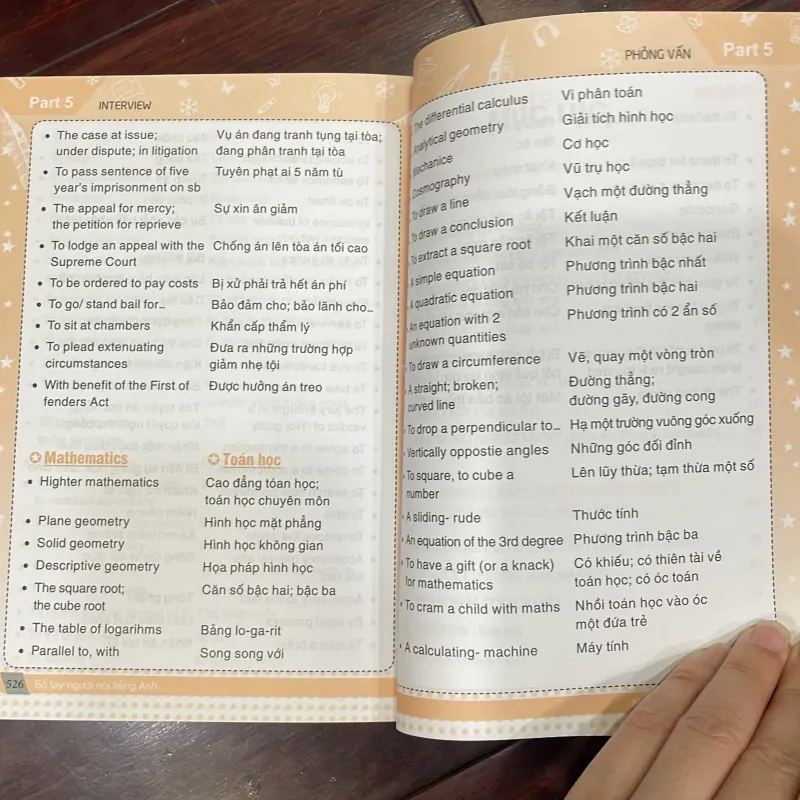 Part 5 INTERVIEW
• The case at issue; Vụ án đang tranh tụng tại tòa;
under dispute; in litigation đang phân tranh tại tòa
• To pass sentence of five Tuyên phạt ai 5 năm tù
year's imprisonment on sb
• The appeal for mercy; Sự xin ân giảm
the petition for reprieve
• To lodge an appeal with the Chống án lên tòa án tối cao
Supreme Court
• To be ordered to pay costs Bị xử phải trả hết án phí
• To go/ stand bail for... Bảo đảm cho; bảo lãnh cho...
• To sit at chambers Khẩn cấp thẩm lý
• To plead extenuating Đưa ra những trường hợp
circumstances giảm nhẹ tội
• With benefit of the First of Được hưởng án treo
fenders Act
✪ Mathematics ✪ Toán học
• Highter mathematics Cao đẳng tóan học;
toán học chuyên môn
• Plane geometry Hình học mặt phẳng
• Solid geometry Hình học không gian
• Descriptive geometry Họa pháp hình học
• The square root; Căn số bậc hai; bậc ba
the cube root
• The table of logarihms Bảng lo-ga-rit
• Parallel to, with Song song với
526 Sổ tay người nói tiếng Anh
PHỎNG VẤN Part 5
The differential calculus Vi phân toán
Analytical geometry Giải tích hình học
Mechanice Cơ học
Cosmography Vũ trụ học
To draw a line Vạch một đường thẳng
To draw a conclusion Kết luận
To extract a square root Khai một căn số bậc hai
A simple equation Phương trình bậc nhất
A quadratic equation Phương trình bậc hai
An equation with 2 Phương trình có 2 ẩn số
unknown quantities
To draw a circumference Vẽ, quay một vòng tròn
A straight; broken; Đường thẳng;
curved line đường gãy, đường cong
To drop a perpendicular to... Hạ một trường vuông góc xuống
Vertically oppostie angles Những góc đối đỉnh
To square, to cube a Lên lũy thừa; tạm thừa một số
number
• A sliding- rude Thước tính
• An equation of the 3rd degree Phương trình bậc ba
• To have a gift (or a knack) Có khiếu; có thiên tài về
for mathematics toán học; có óc toán
• To cram a child with maths Nhồi toán học vào óc
một đứa trẻ
• A calculating- machine Máy tính